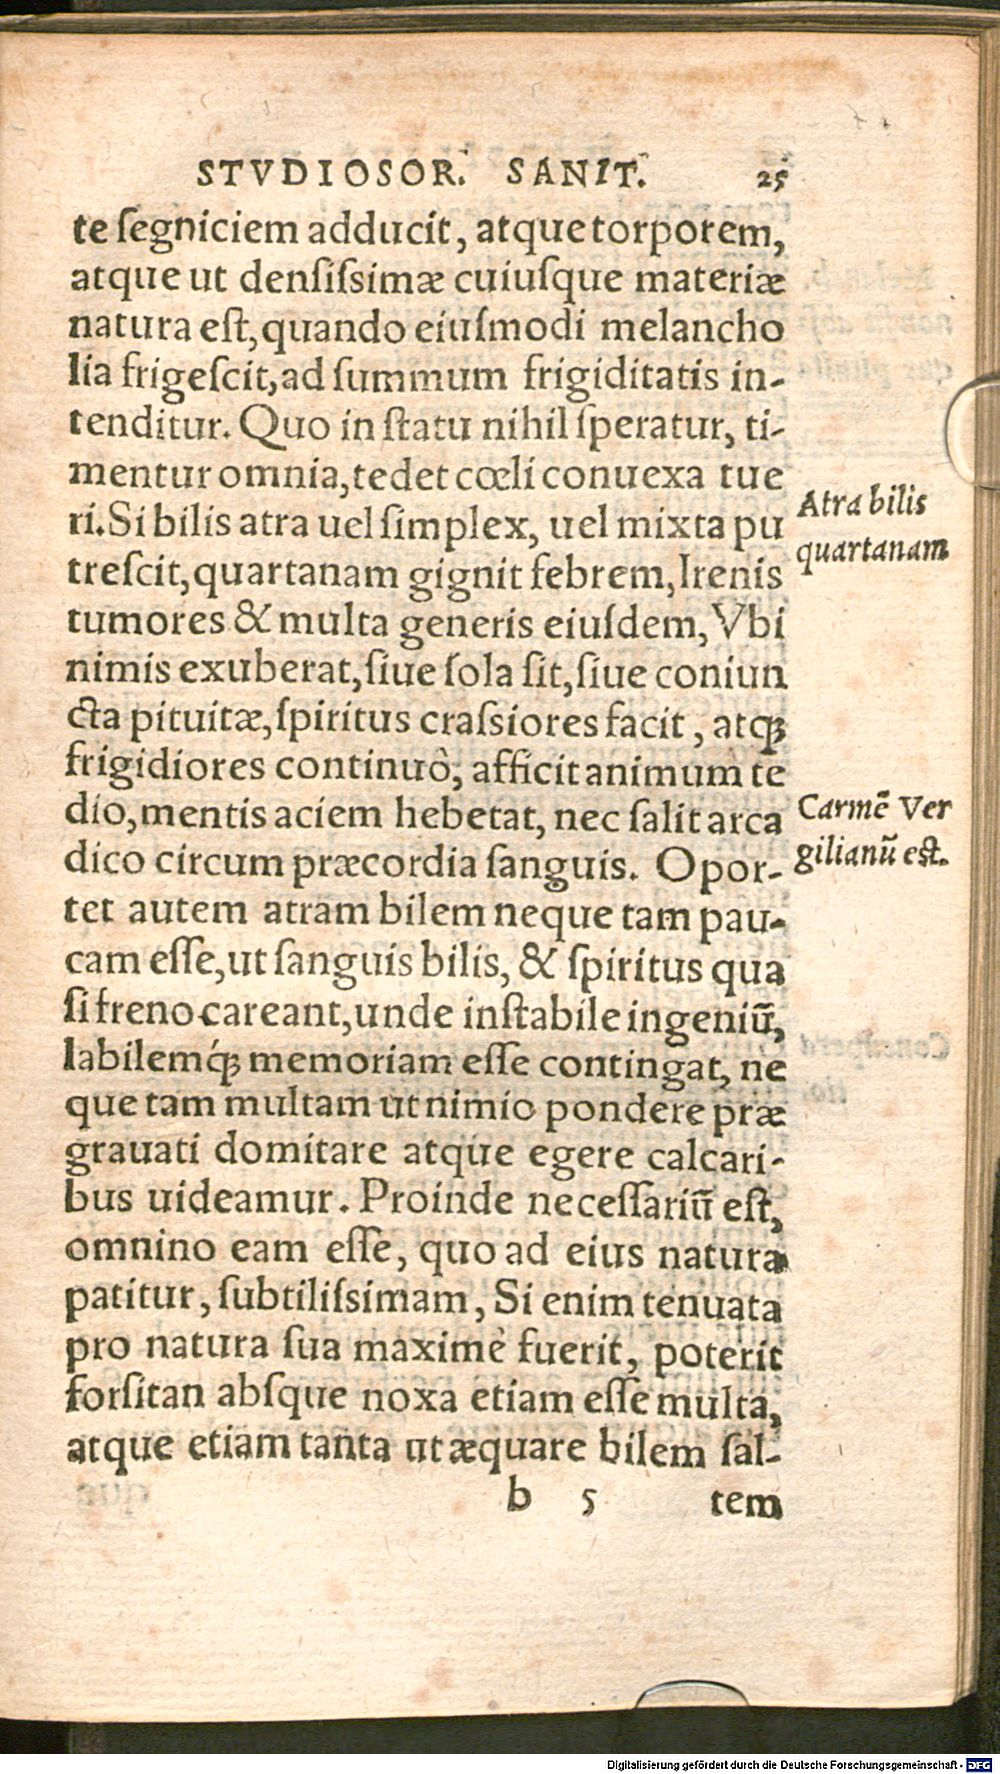 STVDIOSOR. SANIT. 25
te ſegniciem adducit, atque torporem,
atque ut denſiſsimæ cuiuſque materiæ
natura eſt, quando eiuſmodi melancho
lia frigeſcit, ad ſummum frigiditatis in-
tenditur. Quo in ſtatu nihil ſperatur, ti-
mentur omnia, tedet cœli conuexa tue
ri. Si bilis atra uel ſimplex, uel mixta pu
treſcit, quartanam gignit febrem, Irenis
tumores & multa generis eiuſdem, Vbi
nimis exuberat, ſiue ſola ſit, ſiue coniun
cta pituitæ, ſpiritus craſsiores facit, atqꝫ
frigidiores continuò, afficit animum te
dio, mentis aciem hebetat, nec ſalit arca
dico circum præcordia ſanguis. Opor-
tet autem atram bilem neque tam pau-
cam eſſe, ut ſanguis bilis, & ſpiritus qua
ſi freno careant, unde inſtabile ingeniũ,
labilemq́ꝫ memoriam eſſe contingat, ne
que tam multam ut nimio pondere præ
grauati domitare atque egere calcari-
bus uideamur. Proinde neceſſariũ eſt,
omnino eam eſſe, quo ad eius natura
patitur, ſubtiliſsimam, Si enim tenuata
pro natura ſua maximè fuerit, poterit
forſitan abſque noxa etiam eſſe multa,
atque etiam tanta ut æquare bilem ſal-
b 5 tem
Atra bilis
quartanam
Carmẽ Ver
gilianũ eſt.
Digitalisierung gefördert durch die Deutsche Forschungsgemeinschaft - DFG